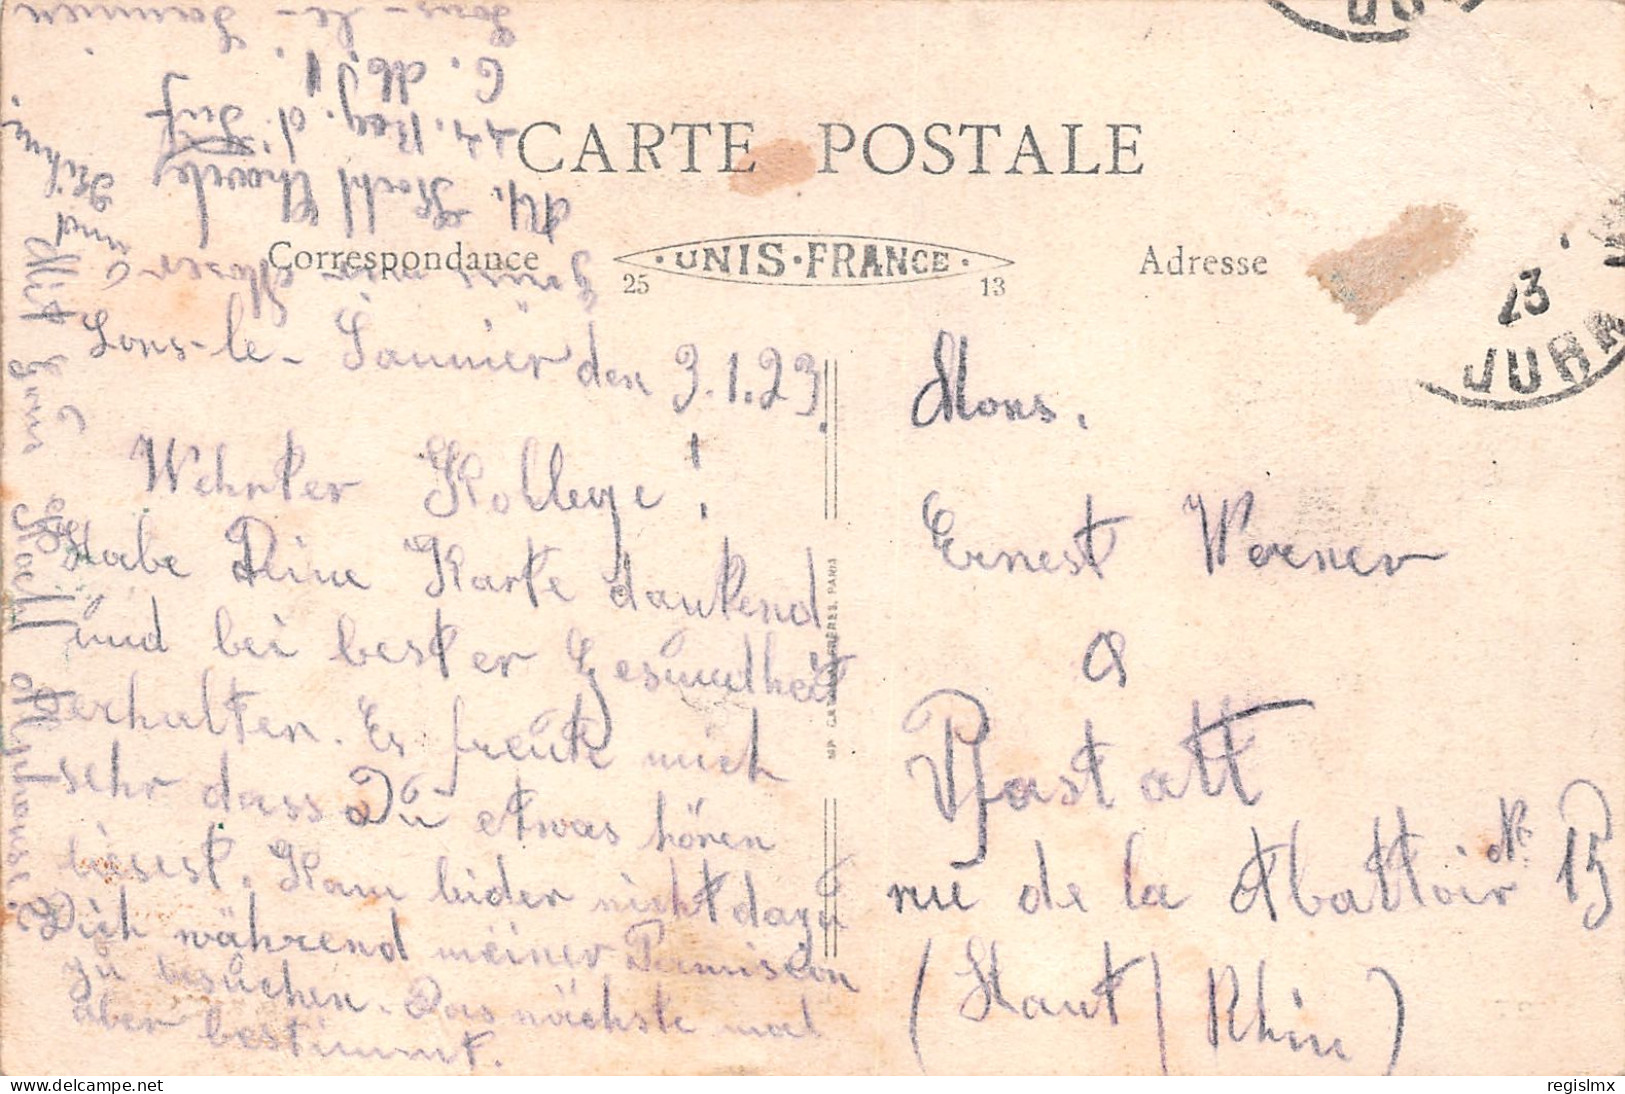 CARTE POSTALE
Correspondance
UNIS-FRANCE
25
13
Adresse
23
JURA
JURA
Lons-le-Saunier den 3.1.23.
Wehrter Kollege!
Habe Deine Karte dankend
und bei bester Gesundheit
erhalten. Es freute mich
sehr dass Du etwas hören
liesest. Kam leider nicht dazu
Dich während meiner Permission
zu besuchen. Das nächste mal
aber bestimmt.
Mit
und
Alphonse
44. Reg. d. Inf
Lons-le-Saunier
Mons.
Ernest Werner
a
Pfastatt
rue de la Abattoir Nr 15
(Haut/Rhin)
PARIS
regislmx